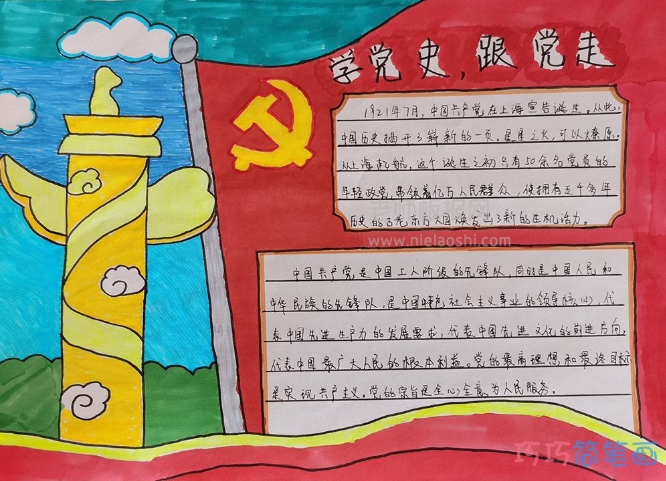 学党史，跟党走
1921年7月，中国共产党在上海宣告诞生。从此，
中国历史揭开了崭新的一页。星星之火，可以燎原。
从上海起航，这个诞生之初只有50余名党员的
年轻政党，带领着亿万人民群众，使拥有五千多年
历史的古老东方大国焕发出了新的生机活力。
www.nielaoshi.com
中国共产党是中国工人阶级的先锋队，同时是中国人民和
中华民族的先锋队，是中国特色社会主义事业的领导核心，代
表中国先进生产力的发展要求，代表中国先进文化的前进方向，
代表中国最广大人民的根本利益。党的最高理想和最终目标
是实现共产主义。党的宗旨是全心全意为人民服务。
巧巧简笔画